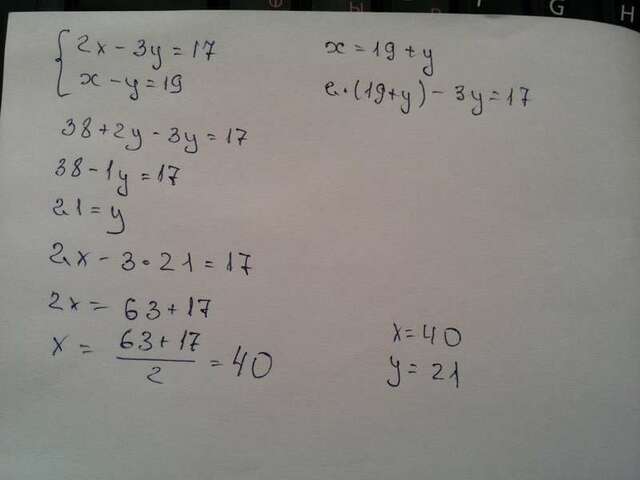 2x - 3y = 17
x - y = 19
x = 19 + y
2·(19+y) - 3y = 17
38 + 2y - 3y = 17
38 - 1y = 17
21 = y
2x - 3·21 = 17
2x = 63 + 17
x = (63 + 17)/2 = 40
x = 40
y = 21